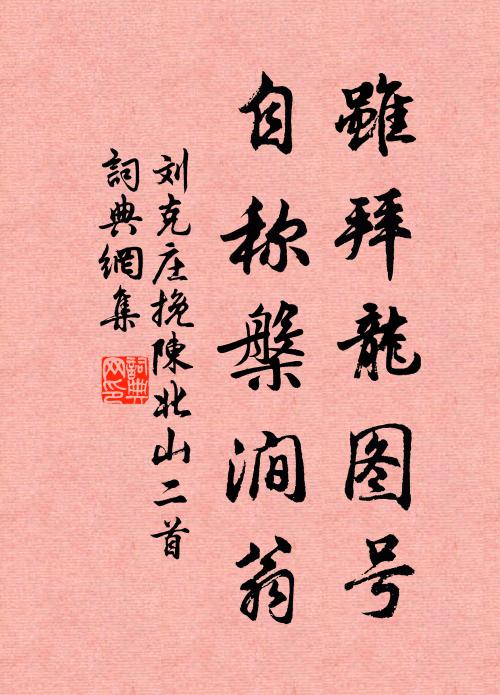 雖拜龍图号
自称槃澗翁
刘克庄挽陳北山二首
詞典網集
詞典網印